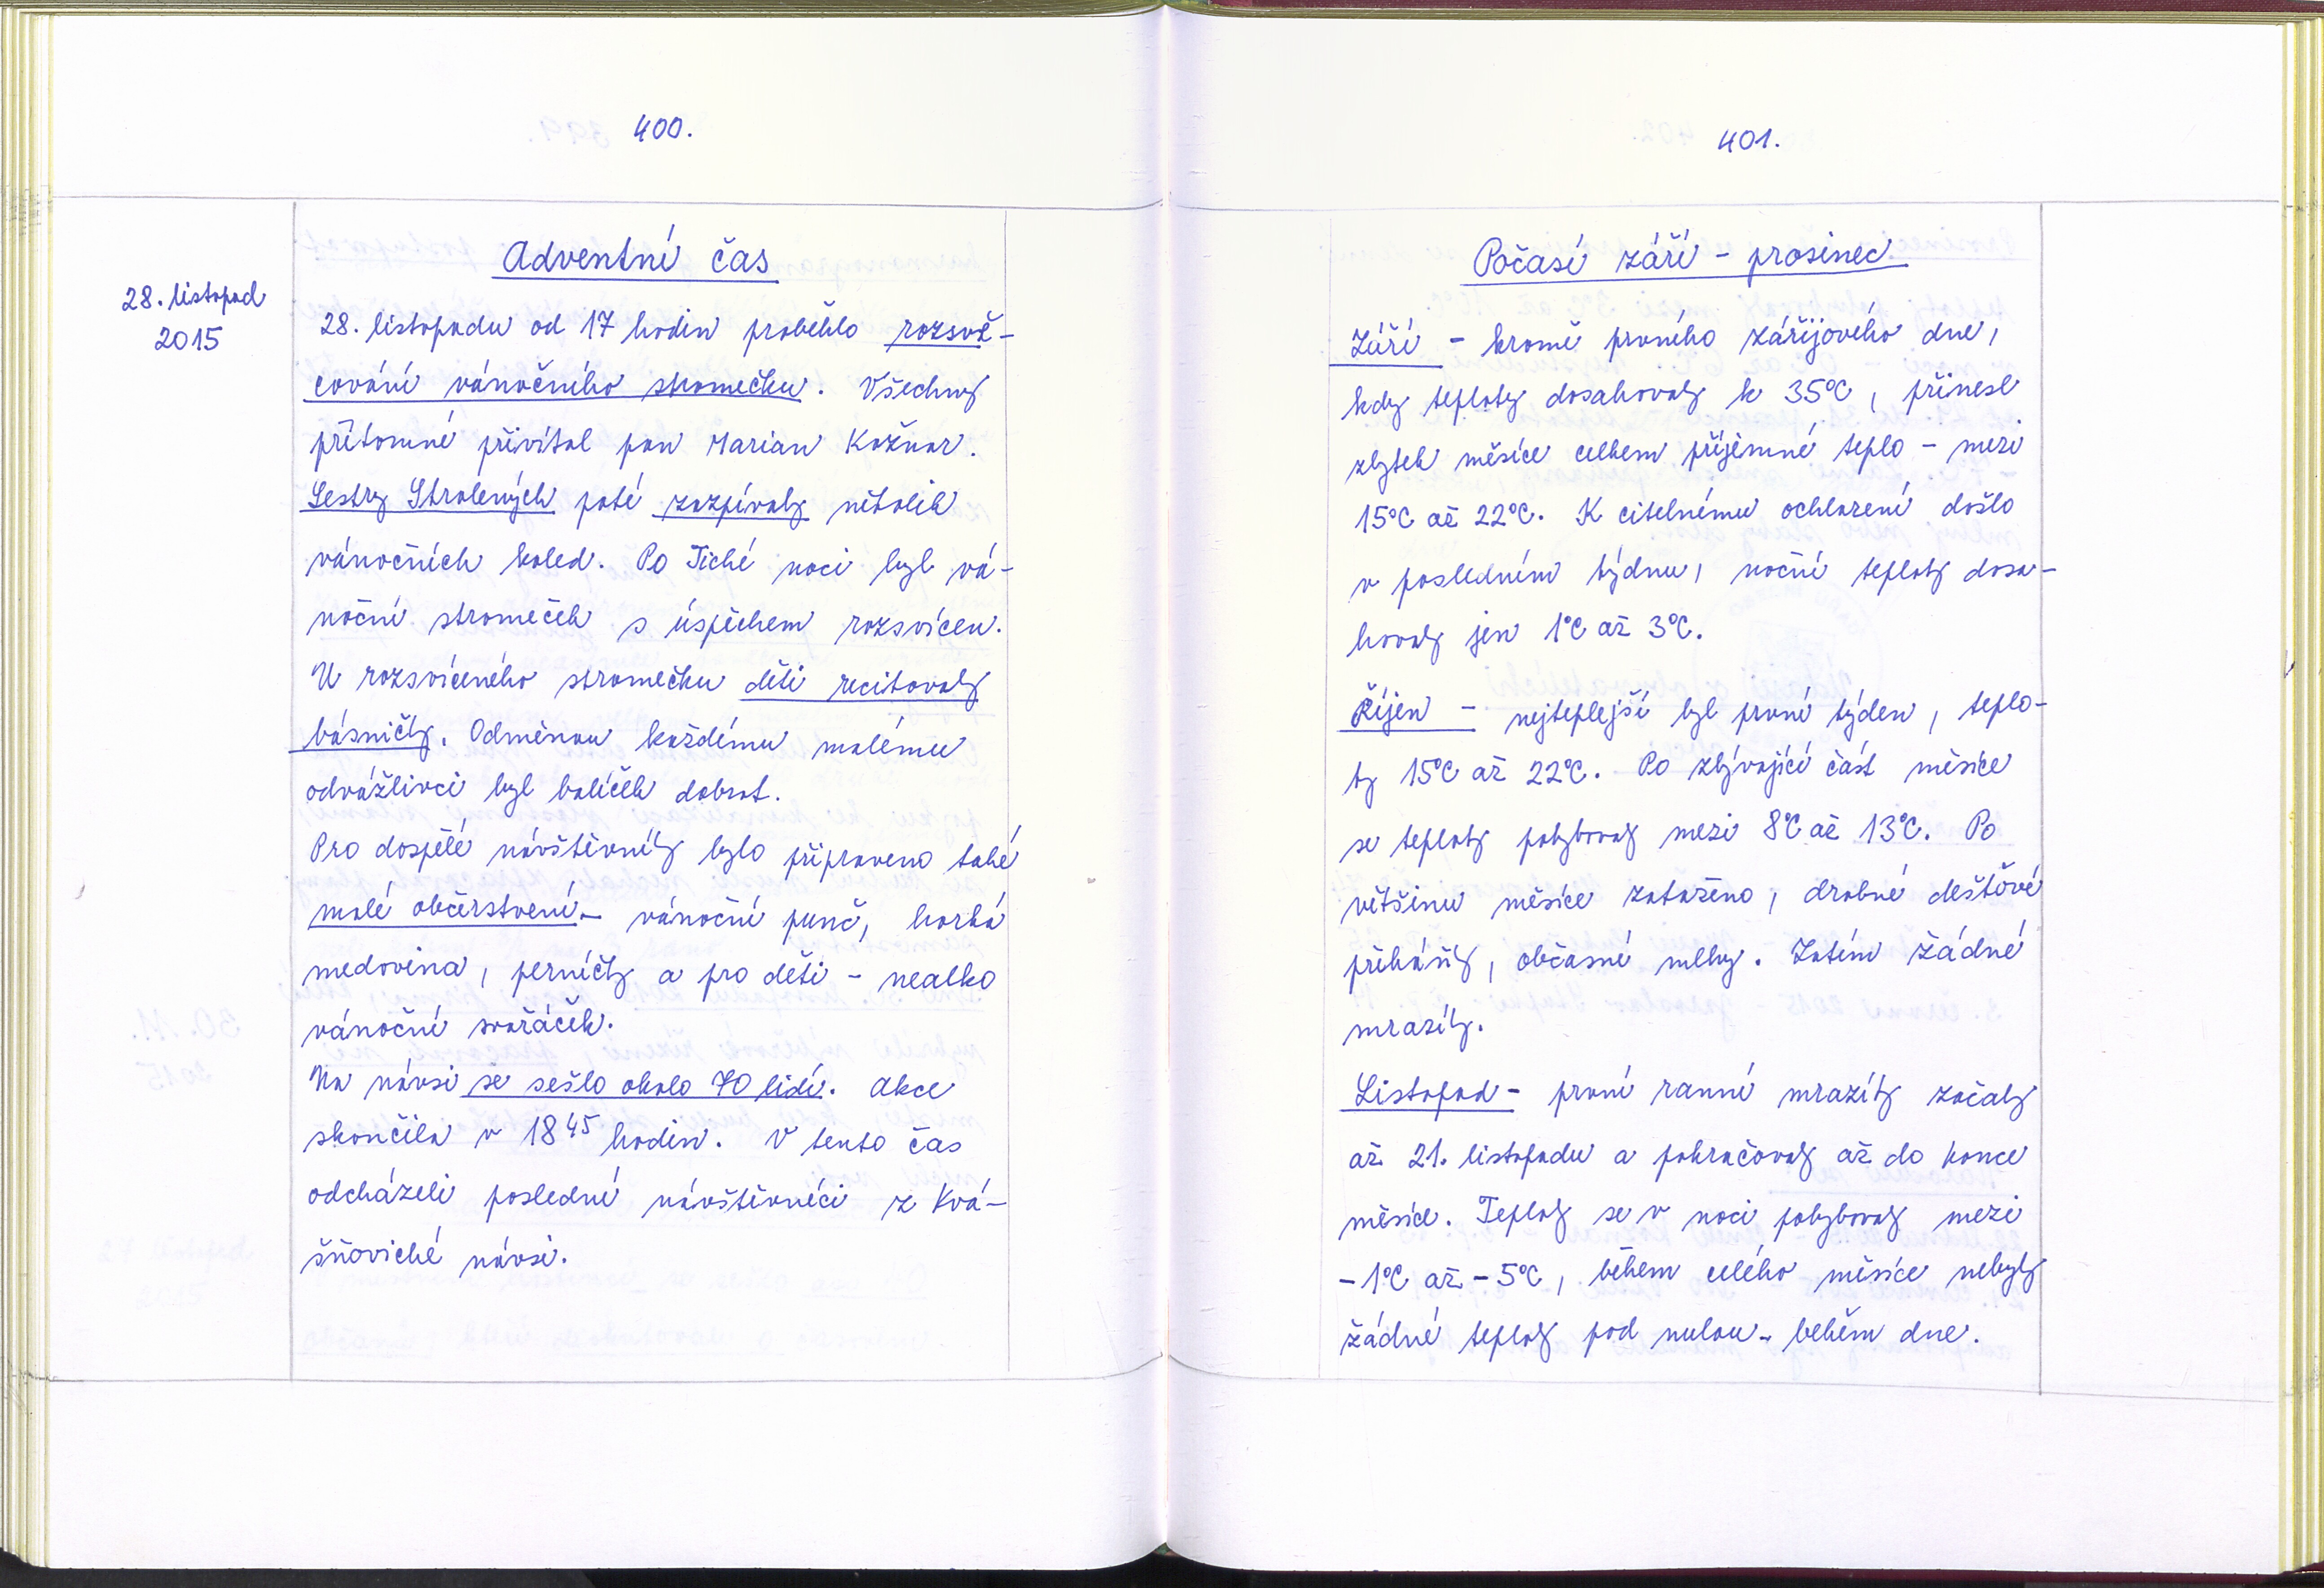 400.
28. listopad
2015
Adventní čas
28. listopadu od 17 hodin proběhlo rozsvě-
cování vánočního stromečku. Všechny
přítomné přivítal pan Marian Kožnar.
Sestry Strolených poté zazpívaly několik
vánočních koled. Po Tiché noci byl vá-
noční stromeček s úspěchem rozsvícen.
U rozsvíceného stromečku děti recitovaly
básničky. Odměnou každému malému
odvážlivci byl balíček dobrot.
Pro dospělé návštěvníky bylo připraveno také
malé občerstvení - vánoční punč, horká
medovina, perníčky a pro děti - nealko
vánoční svařáček.
Na návsi se sešlo okolo 70 lidí. Akce
skončila v 18 45 hodin. V tento čas
odcházeli poslední návštěvníci z Kvá-
šňovické návsi.
401.
Počasí září - prosinec
Září - kromě prvního zářijového dne,
kdy teploty dosahovaly k 35°C, přinesl
zbytek měsíce celkem příjemné teplo - mezi
15°C až 22°C. K citelnému ochlazení došlo
v posledním týdnu, noční teploty dosa-
hovaly jen 1°C až 3°C.
Říjen - nejteplejší byl první týden, teplo-
ty 15°C až 22°C. Po zbývající část měsíce
se teploty pohybovaly mezi 8°C až 13°C. Po
většinu měsíce zataženo, drobné dešťové
přeháňky, občasné mlhy. Zatím žádné
mrazíky.
Listopad - první ranní mrazíky začaly
až 21. listopadu a pokračovaly až do konce
měsíce. Teploty se v noci pohybovaly mezi
-1°C až -5°C, během celého měsíce nebyly
žádné teploty pod nulou - během dne.